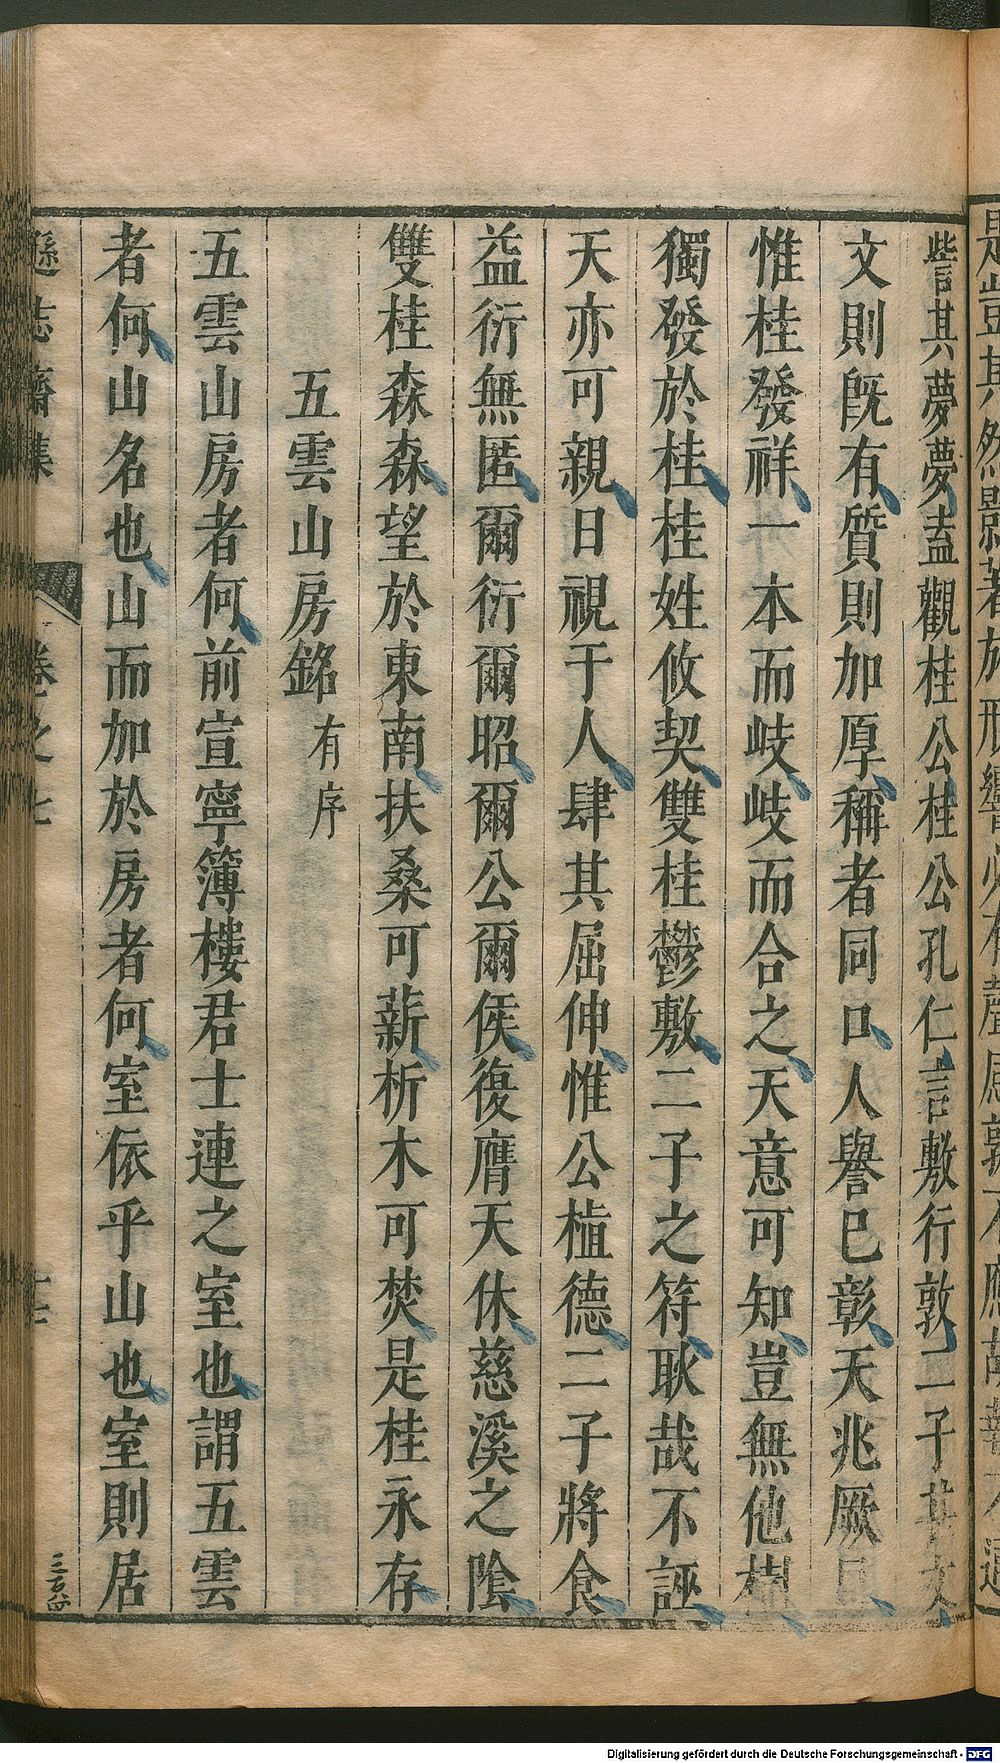 訾其夢夢盍觀桂公桂公孔仁言敷行敦二子其文
文則旣有質則加厚稱者同口人譽已彰天兆厥
惟桂發祥一本而岐岐而合之天意可知豈無他樹
獨發於桂桂姓攸契雙桂鬱敷二子之符耿哉不誣
天亦可親日視于人肆其屈伸惟公植德二子將食
益衍無匿爾衍爾昭爾公爾侯復膺天休慈溪之陰
雙桂森森望於東南扶桑可薪析木可焚是桂永存
五雲山房銘有序
五雲山房者何前宣寧簿樓君士連之室也謂五雲
者何山名也山而加於房者何室依乎山也室則居
遜志齋集
卷之七
十七
Digitalisierung gefördert durch die Deutsche Forschungsgemeinschaft - DFG